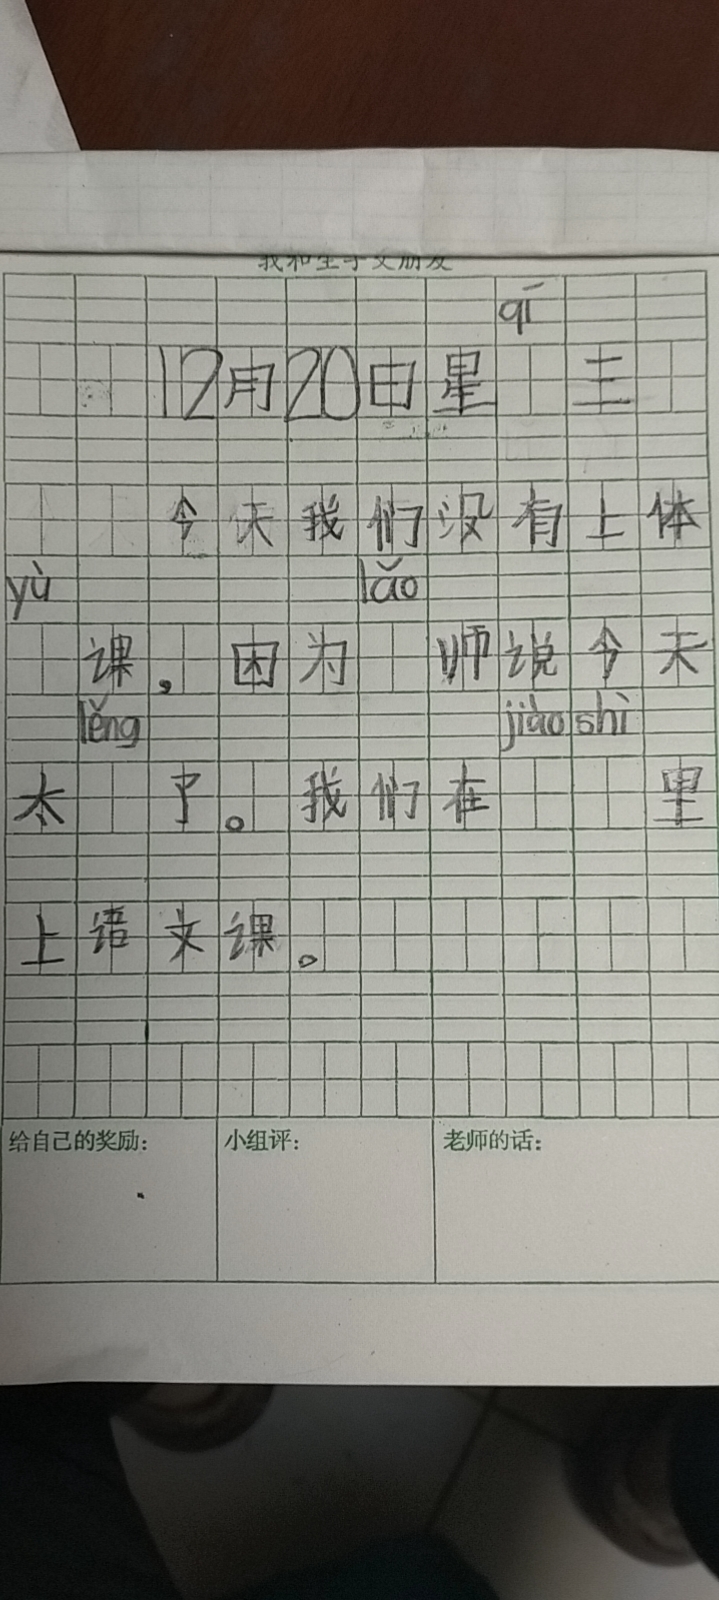 我和生字交朋友
qī
12月20日星 三
今天我们没有上体
yù lǎo
课。因为 师说今天
lěng jiào shì
太 了。我们在 里
上语文课。
给自己的奖励: 小组评: 老师的话: